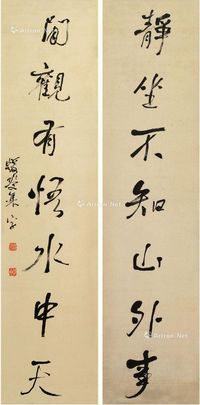 靜坐不知山外事
閒觀有悟水中天
集字